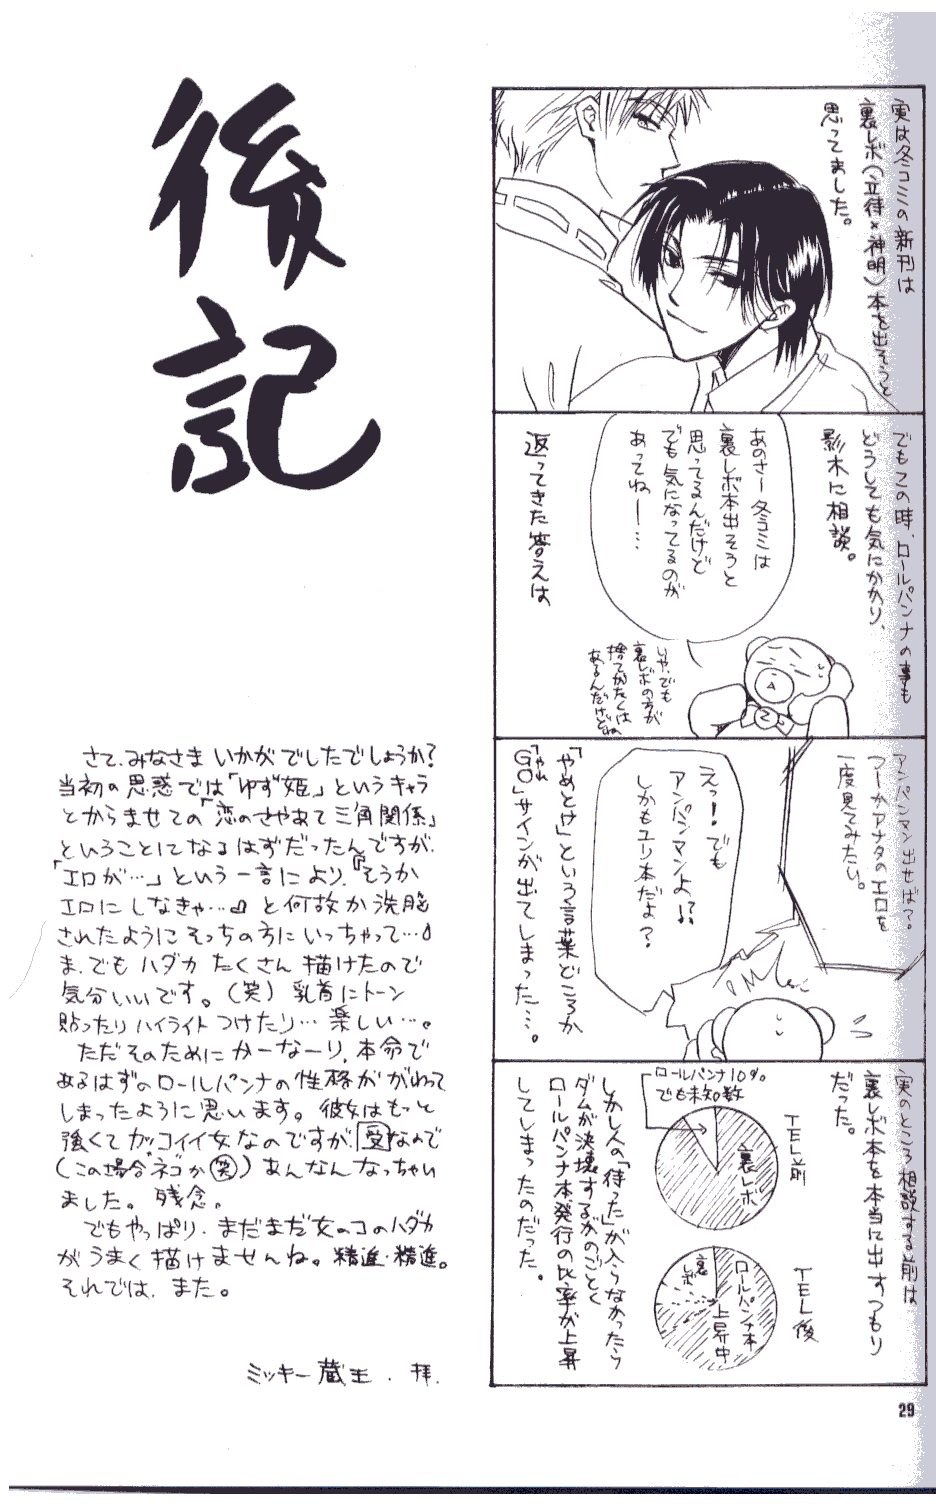 後記
実は冬コミの新刊は
裏レボ(立待×神明)本を出そうと
思ってました。
でもこの時、ロールパンナの事も
どうしても気にかかり、
影木に相談。
あのさー冬コミは
裏レボ本出そうと
思ってるんだけど
でも気になってるのが
あってねー…
いや、でも
裏レボの方が
捨てがたくは
あるんだけどね
返ってきた答えは
アンパンマン出せば?
つーかアナタのエロを
一度見てみたい。
えっ!でも
アンパンマンよ!?
しかもユリ本だよ?
「やめとけ」という言葉どころか
「やれ
GO」サインが出てしまった…。
実のところ相談する前は
裏レボ本を本当に出すつもり
だった。
TEL前
裏レボ
ロールパンナ10%
でも未知数
TEL後
ロールパンナ本
上昇中
裏レボ
しかし人の「待った」が入らなかったら
ダムが決壊するがのごとく
ロールパンナ本発行の比率が上昇
してしまったのだった。
さて、みなさまいかがでしたでしょうか?
当初の思惑では「ゆず姫」というキャラ
とからませての「恋のさやあて三角関係」
ということになるはずだったんですが、
「エロが…」という一言により、『そうか
エロにしなきゃ…』と何故か洗脳
されたようにそっちの方にいっちゃって…
ま、でもハダカたくさん描けたので
気分いいです。(笑)乳首にトーン
貼ったりハイライトつけたり…楽しい…。
ただそのためにかーなーり、本命で
あるはずのロールパンナの性格がかわって
しまったように思います。彼女はもっと
強くてカッコイイ女なのですが、受なので
(この場合ネコか笑)あんなんなっちゃい
ました。残念。
でもやっぱり、まだまだ女のコのハダカ
がうまく描けませんね。精進・精進。
それでは、また。
ミッキー蔵王・拝.
29